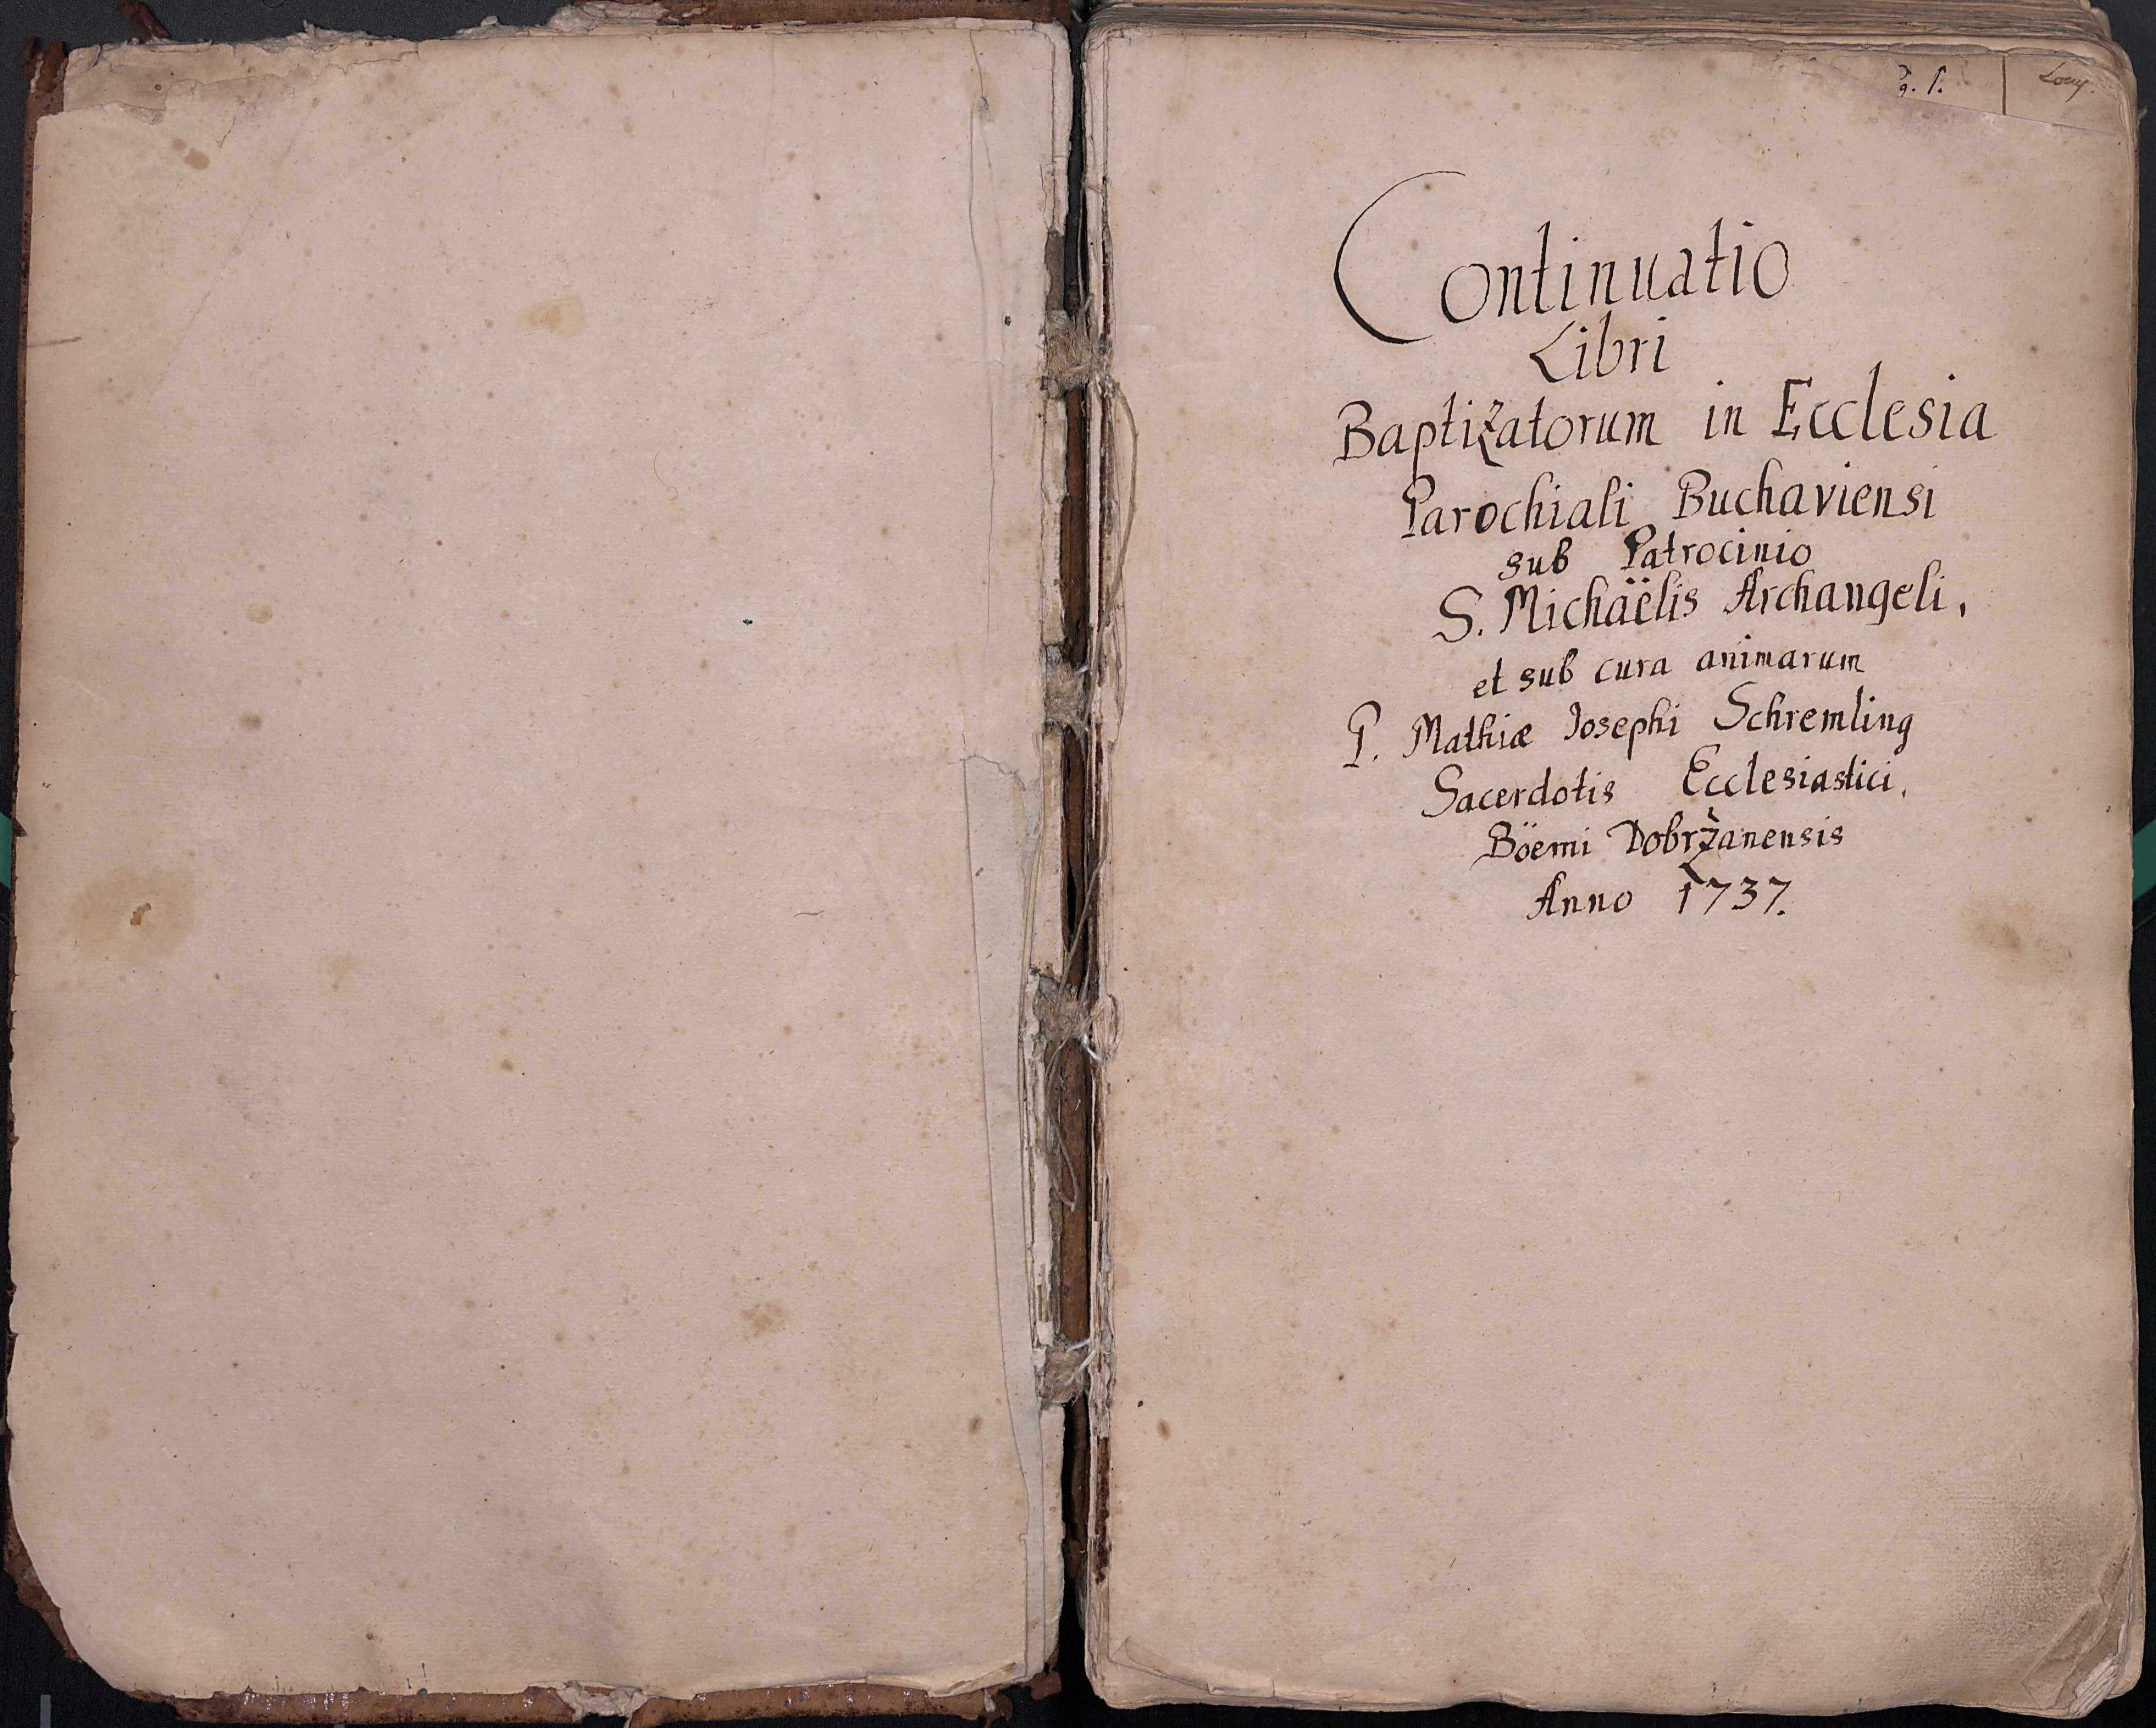 Continuatio
Libri
Baptizatorum in Ecclesia
Parochiali Buchaviensi
sub Patrocinio
S. Michaëlis Archangeli,
et sub cura animarum
P. Mathiæ Josephi Schremling
Sacerdotis Ecclesiastici,
Böemi Dobržanensis
Anno 1737.